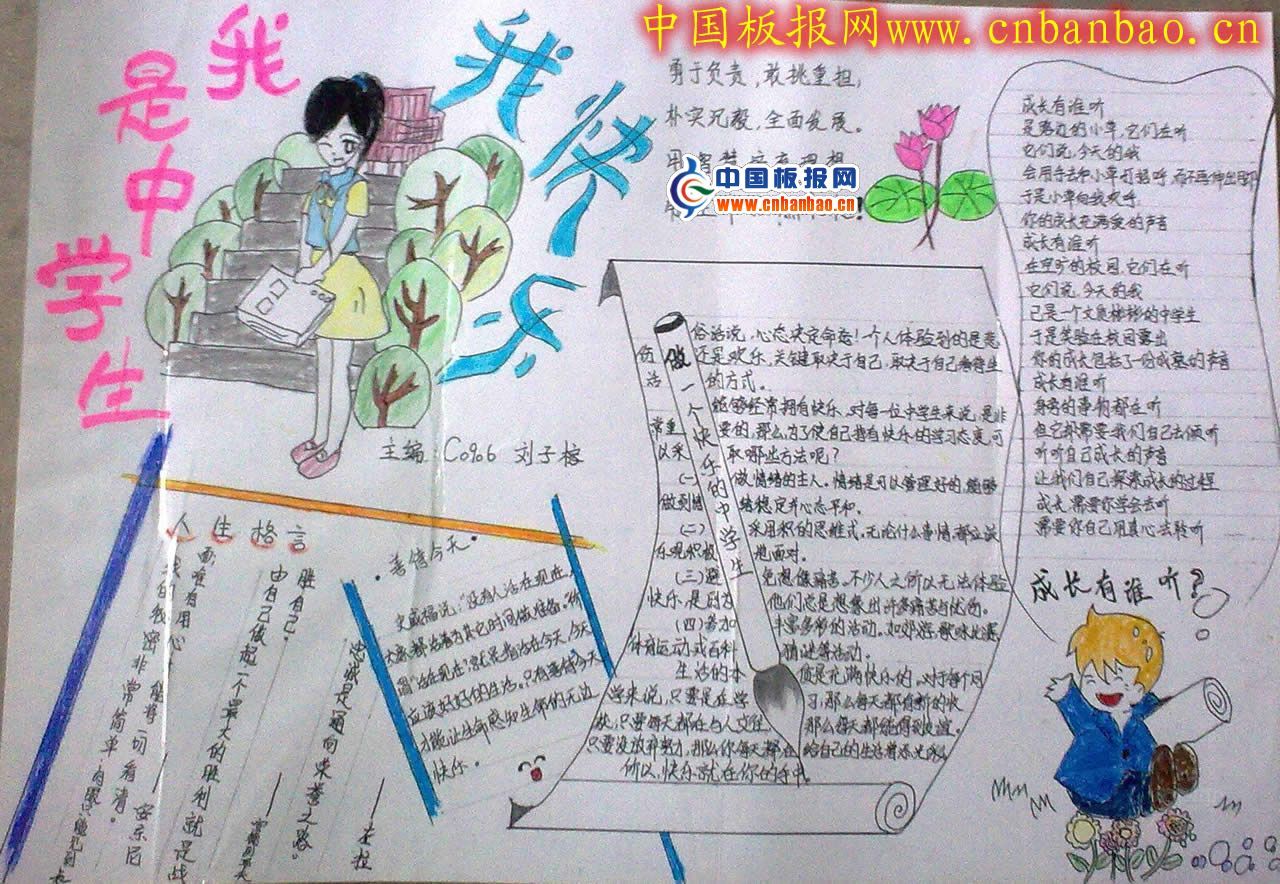 中国板报网www.cnbanbao.cn
我是中学生
我快乐
勇于负责,敢挑重担,
朴实沉毅,全面发展。
中国板报网
www.cnbanbao.cn
主编:C096 刘子榕
成长有谁听
是路边的小草,它们在听
它们说,今天的我
会用手去和小草打招呼,而不再伸出
于是小草向我欢呼,
你的成长充满爱的声音
成长有谁听
在空旷的校园,它们在听
它们说,今天的我
已是一个文质彬彬的中学生
于是笑脸在校园露出
你的成长包括了份成熟的声音
成长有谁听
身旁的事物都在听
但它都需要我们自己去倾听
听听自己成长的声音
让我们自己探索成长的过程
成长,需要你学会去听
需要你自己用真心去聆听
成长有谁听?
做一个快乐的中学生
俗话说,心态决定命运!一个人体验到的是悲
伤还是欢乐,关键取决于自己,取决于自己看待生
活的方式。
能够经常拥有快乐,对每一位中学生来说,是非
常重要的,那么为了使自己拥有快乐的学习态度,可
以采取哪些方法呢?
(一)做情绪的主人。情绪是可以管理好的,能够
做到情绪稳定并心态平和。
(二)采用积的思维式,无论什么事情,都应该
乐观积极地面对。
(三)避免想像痛苦。不少人之所以无法体验
快乐,是因为他们总是想象出许多痛苦与忧伤。
(四)参加丰富多彩的活动。如郊游,歌咏比赛,
体育运动或百科猜谜等活动。
生活的本质是充满快乐的。对于每个同
学来说,只要是在学习,那么每天都有新的收
获,只要每天都在与人交往,那么每天都能得到友谊。
只要没放弃努力,那么你每天都在给自己的生活着
所以,快乐就在你的手中。
人生格言
胜自己。
由自己做起一个最大的胜利就是战
忠诚是通向荣誉之路。
——左拉
我的秘密非常简单:
能将一切看清。
——安东尼
善待今天
史威福说:“没有人活在现在,
大家都活着为其它时间做准备。”所
谓“活在现在”,就是指活在今天,今天
应该好好的生活。只有善待今天
才能让生命感知生命的无边
快乐。